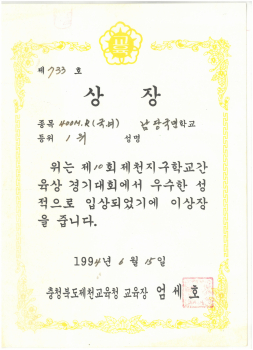 제 733 호
상 장
종목 400M.R (국.여) 남당국민학교
등위 1 위 성명
위는 제10회 제천지구학교간
육상 경기대회에서 우수한 성
적으로 입상되었기에 이상장
을 줍니다.
1994년 6월 15일
충청북도제천교육청 교육장 엄세호